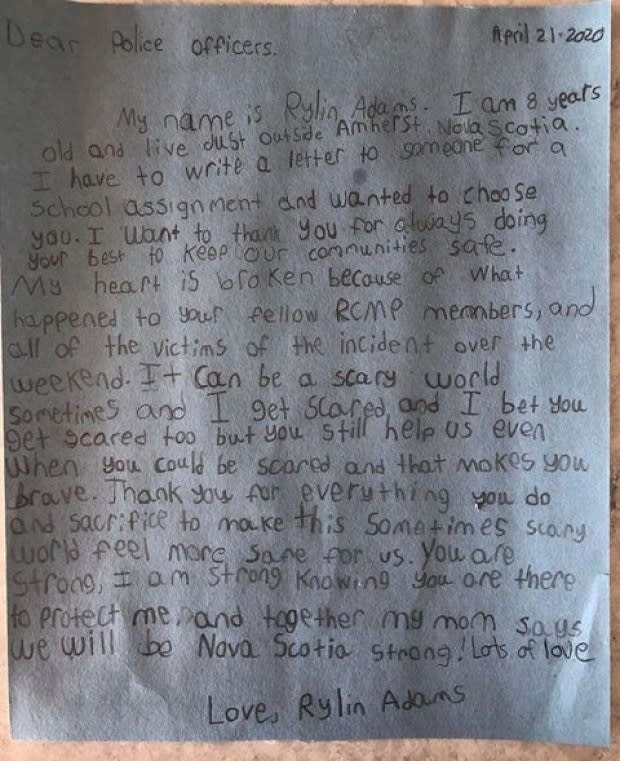 Dear Police officers. April 21-2020
My name is Rylin Adams. I am 8 years
old and live Just outside Amherst, Nova Scotia.
I have to write a letter to someone for a
school assignment and wanted to choose
you. I want to thank you for always doing
your best to keep our communities safe.
My heart is broken because of what
happened to your fellow RCMP members, and
all of the victims of the incident over the
weekend. It can be a scary world
sometimes and I get scared, and I bet you
get scared too but you still help us even
when you could be scared and that makes you
brave. Thank you for everything you do
and sacrifice to make this sometimes scary
world feel more safe for us. You are
strong, I am strong knowing you are there
to protect me, and together my mom says
we will be Nova Scotia strong! Lots of love
Love, Rylin Adams